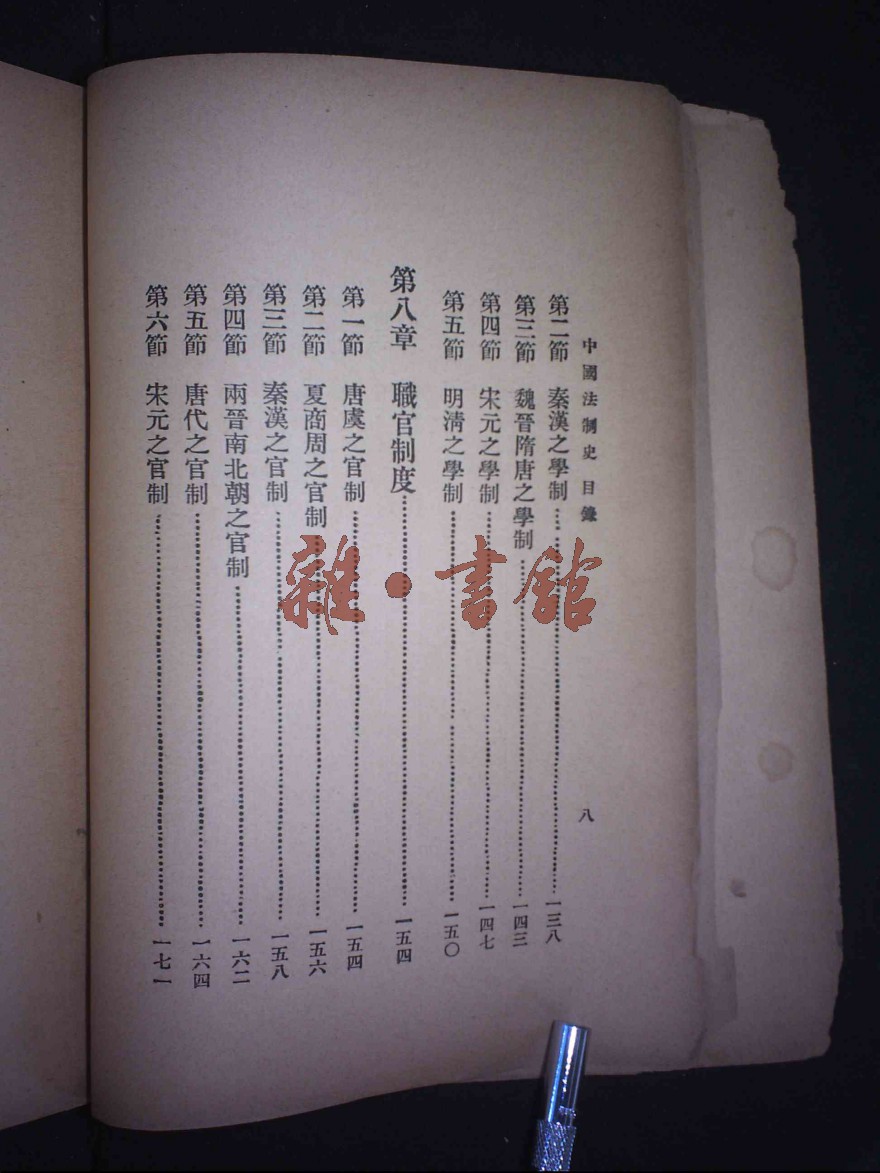 中國法制史 目錄
八
第二節 秦漢之學制 一三八
第三節 魏晉隋唐之學制 一四三
第四節 宋元之學制 一四七
第五節 明清之學制 一五〇
第八章 職官制度 一五四
第一節 唐虞之官制 一五四
第二節 夏商周之官制 一五六
第三節 秦漢之官制 一五八
第四節 兩晉南北朝之官制 一六二
第五節 唐代之官制 一六四
第六節 宋元之官制 一七一
雜·書館